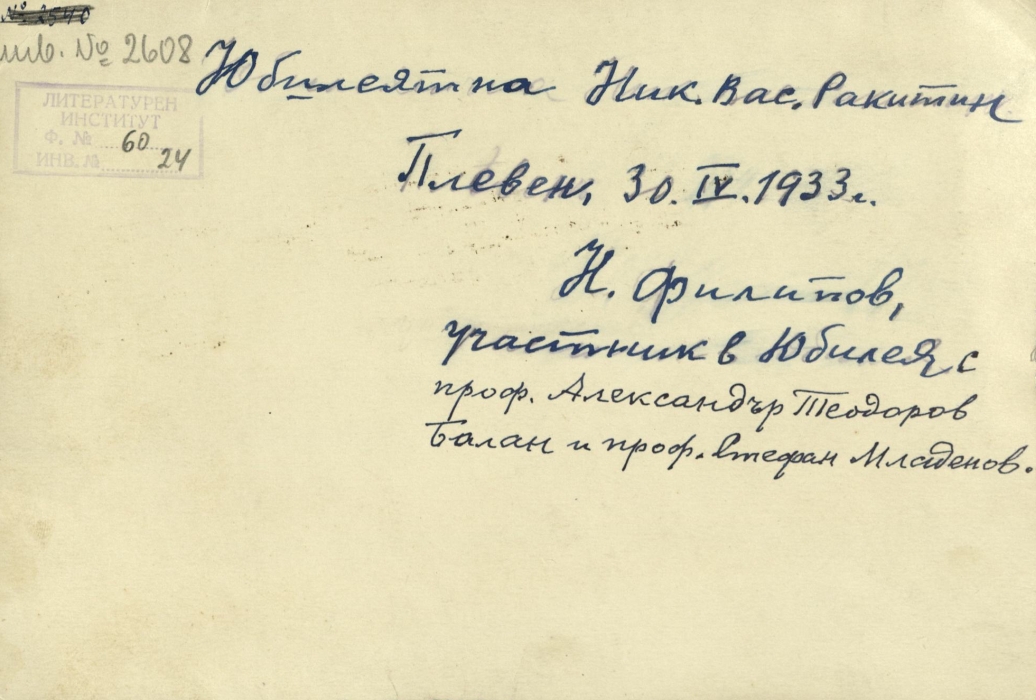 № 2540
инв. № 2608
ЛИТЕРАТУРЕН
ИНСТИТУТ
Ф. № 60
ИНВ. № 24
Юбилеят на Ник. Вас. Ракитин
Плевен, 30. IV. 1933 г.
Н. Филипов,
участник в Юбилея с
проф. Александър Теодоров
Балан и проф. Стефан Младенов.